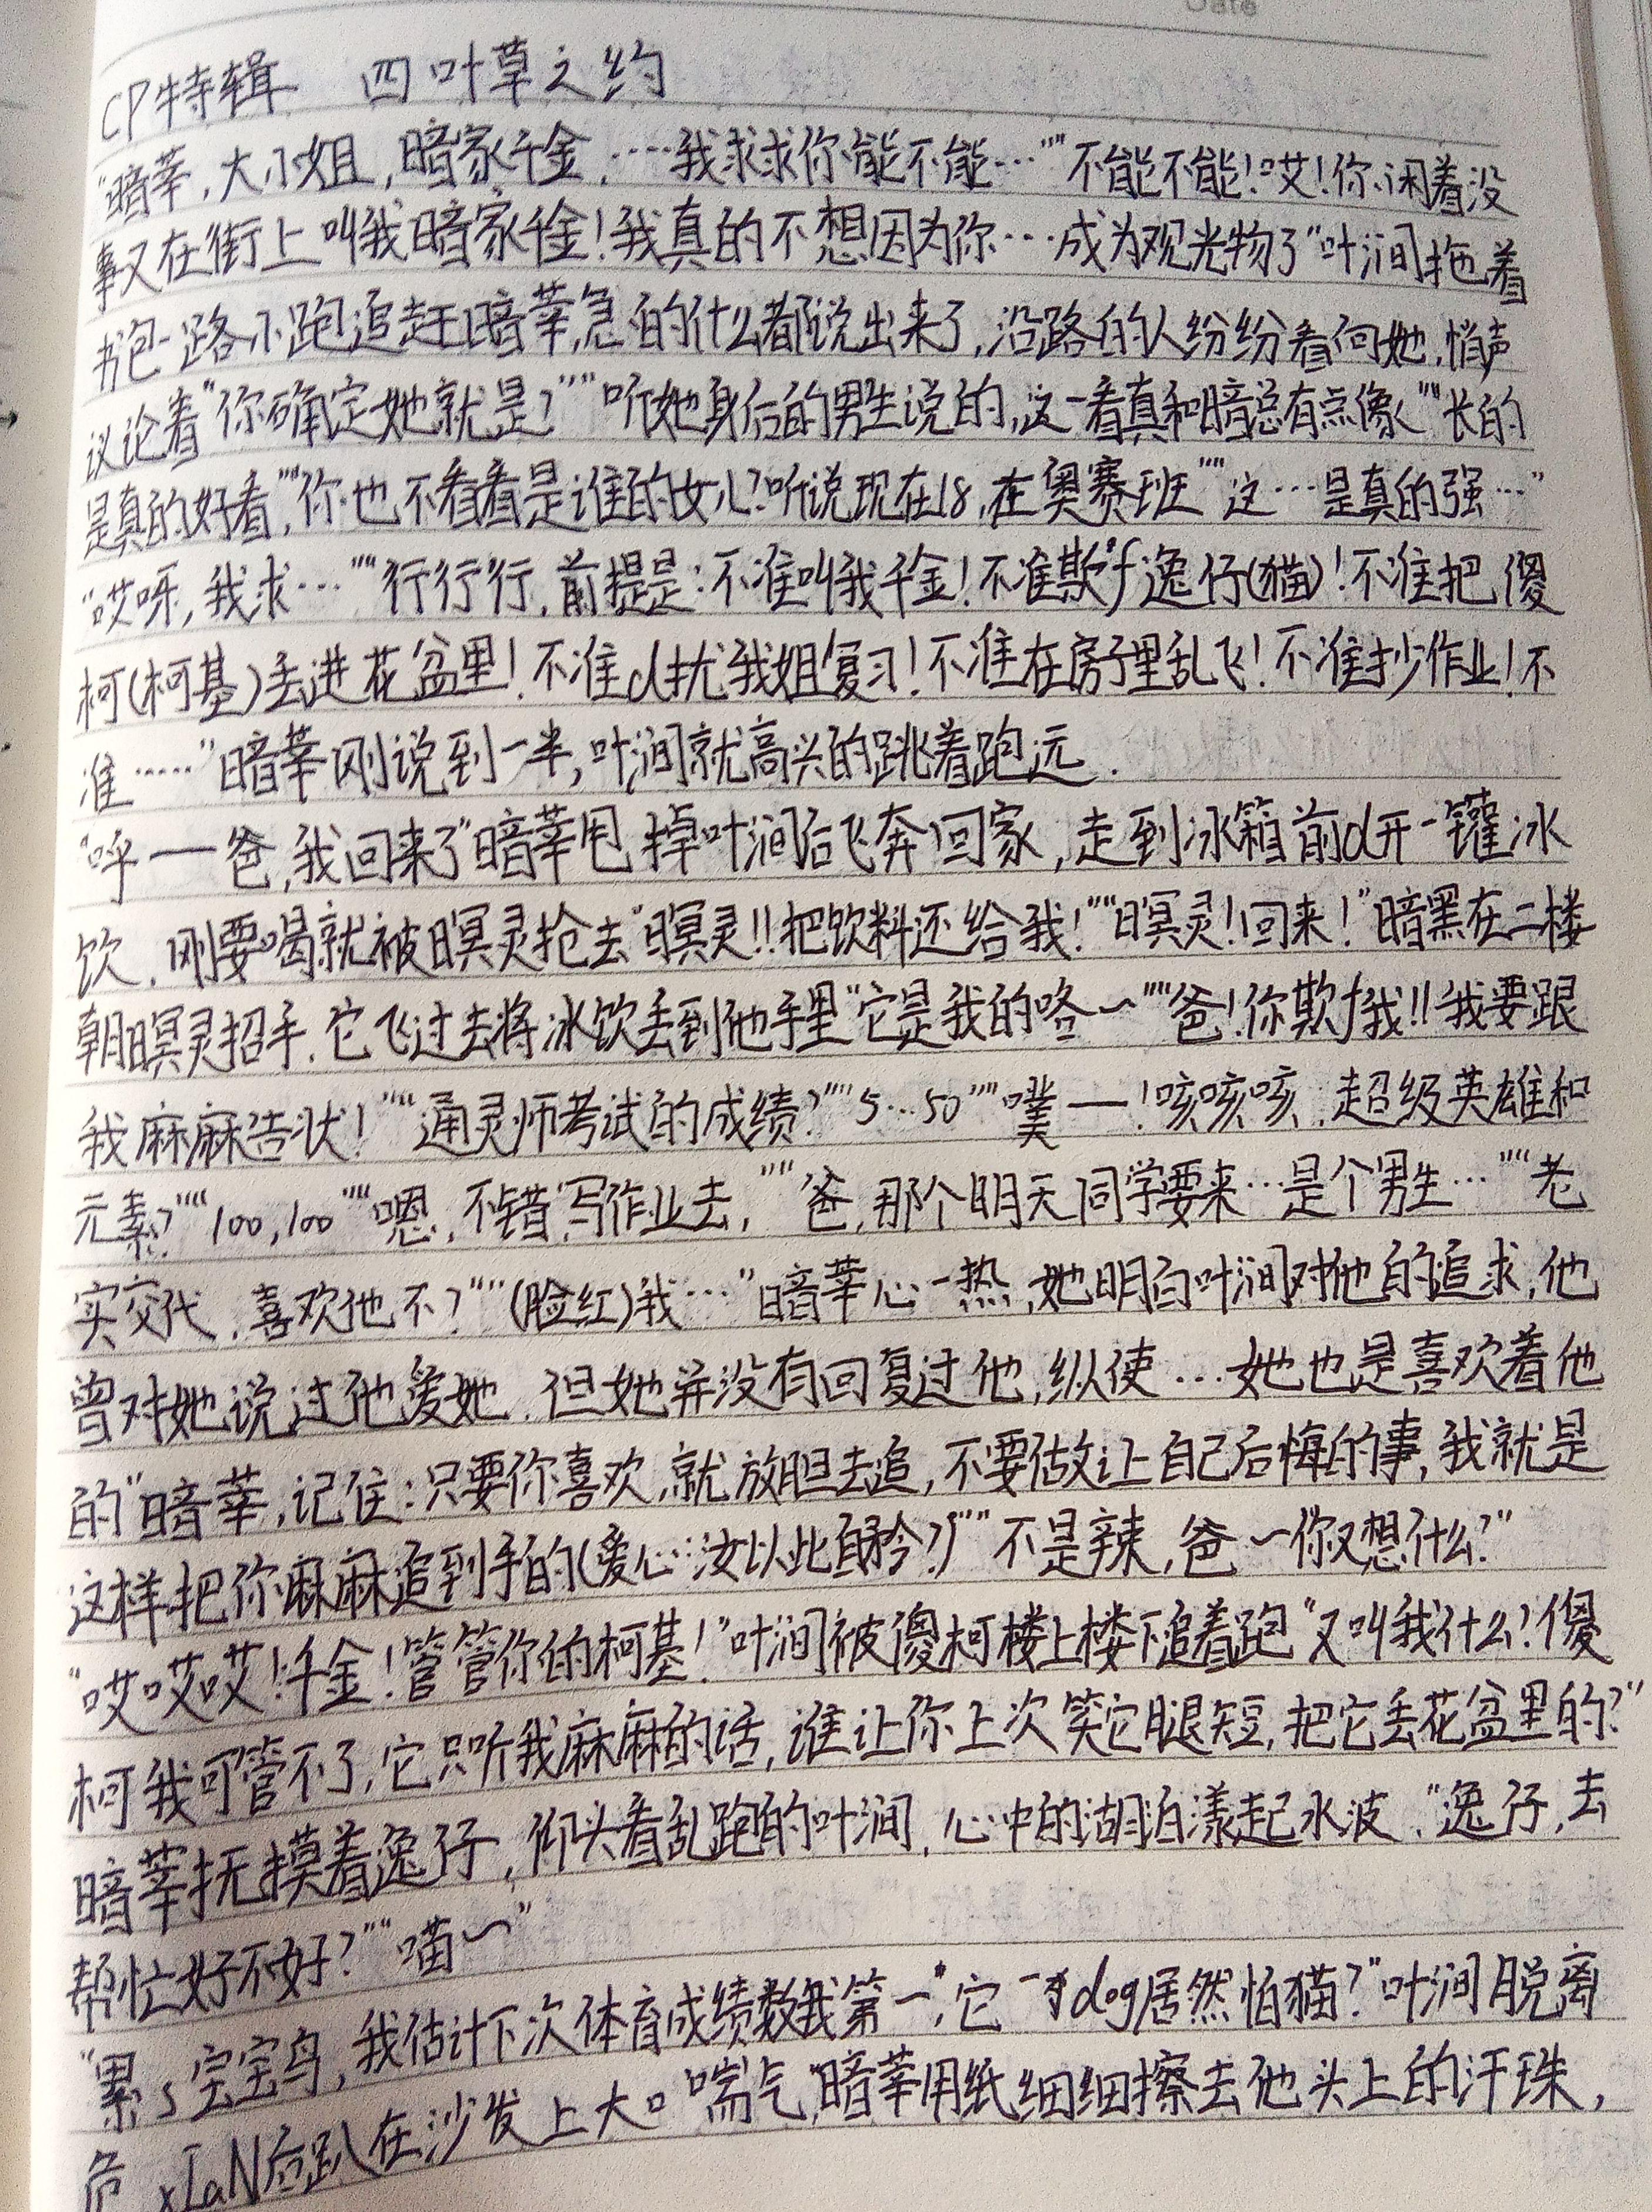 Date
CP特辑 四叶草之约
"暗莘,大小姐,暗家千金,……我求求你能不能…""不能不能!哎!你闲着没
事又在街上叫我暗家千金!我真的不想因为你…成为观光物了"叶涧拖着
书包一路小跑追赶暗莘,急的什么都说出来了,沿路的人纷纷看向她,悄声
议论着"你确定她就是?""听她身后的男生说的,这一看真和暗总有点像""长的
是真的好看,""你也不看看是谁的女儿?听说现在18,在奥赛班""这…是真的强…"
"哎呀,我求…""行行行,前提是:不准叫我千金!不准欺f逸仔(猫)!不准把傻
柯(柯基)丢进花盆里!不准d扰我姐复习!不准在房子里乱飞!不准抄作业!不
准……"暗莘刚说到一半,叶涧就高兴的跳着跑远.
"呼——爸,我回来了"暗莘甩掉叶涧后飞奔回家,走到冰箱前d开一罐冰
饮,刚要喝就被暝灵抢去"暝灵!!把饮料还给我!""暝灵!回来!"暗黑在二楼
朝暝灵招手,它飞过去将冰饮丢到他手里"它是我的咯~""爸!你欺f我!!我要跟
我麻麻告状!""通灵师考试的成绩?""5…50""噗——!咳咳咳,超级英雄和
元素?""100,100""嗯,不错,写作业去,""爸,那个明天同学要来…是个男生…""老
实交代,喜欢他不?""(脸红)我…"暗莘心一热,她明白叶涧对他的追求,他
曾对她说过他爱她,但她并没有回复过他,纵使…她也是喜欢着他
的"暗莘,记住:只要你喜欢,就放胆去追,不要做让自己后悔的事,我就是
这样把你麻麻追到手的(爱心:汝以此自矜?)""不是辣,爸~你又想什么?"
"哎哎哎!千金!管管你的柯基!"叶涧被傻柯楼上楼下追着跑"又叫我什么!傻
柯我可管不了,它只听我麻麻的话,谁让你上次笑它腿短,把它丢花盆里的?"
暗莘抚摸着逸仔,仰头看乱跑的叶涧,心中的湖泊漾起水波,"逸仔,去
帮忙好不好?""喵~"
"累s宝宝鸟,我估计下次体育成绩数我第一,它一dog居然怕猫?"叶涧脱离
危xIaN后趴在沙发上大口喘气,暗莘用纸细细擦去他头上的汗珠,